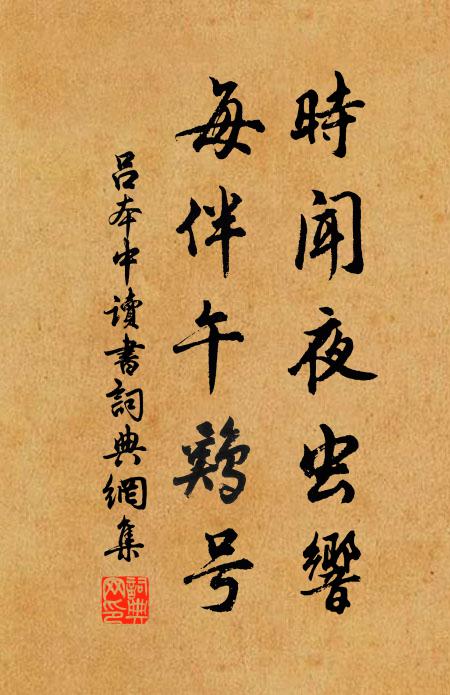 時聞夜虫響
每伴午鷄号
吕本中讀書詞典網集
詞典
网印